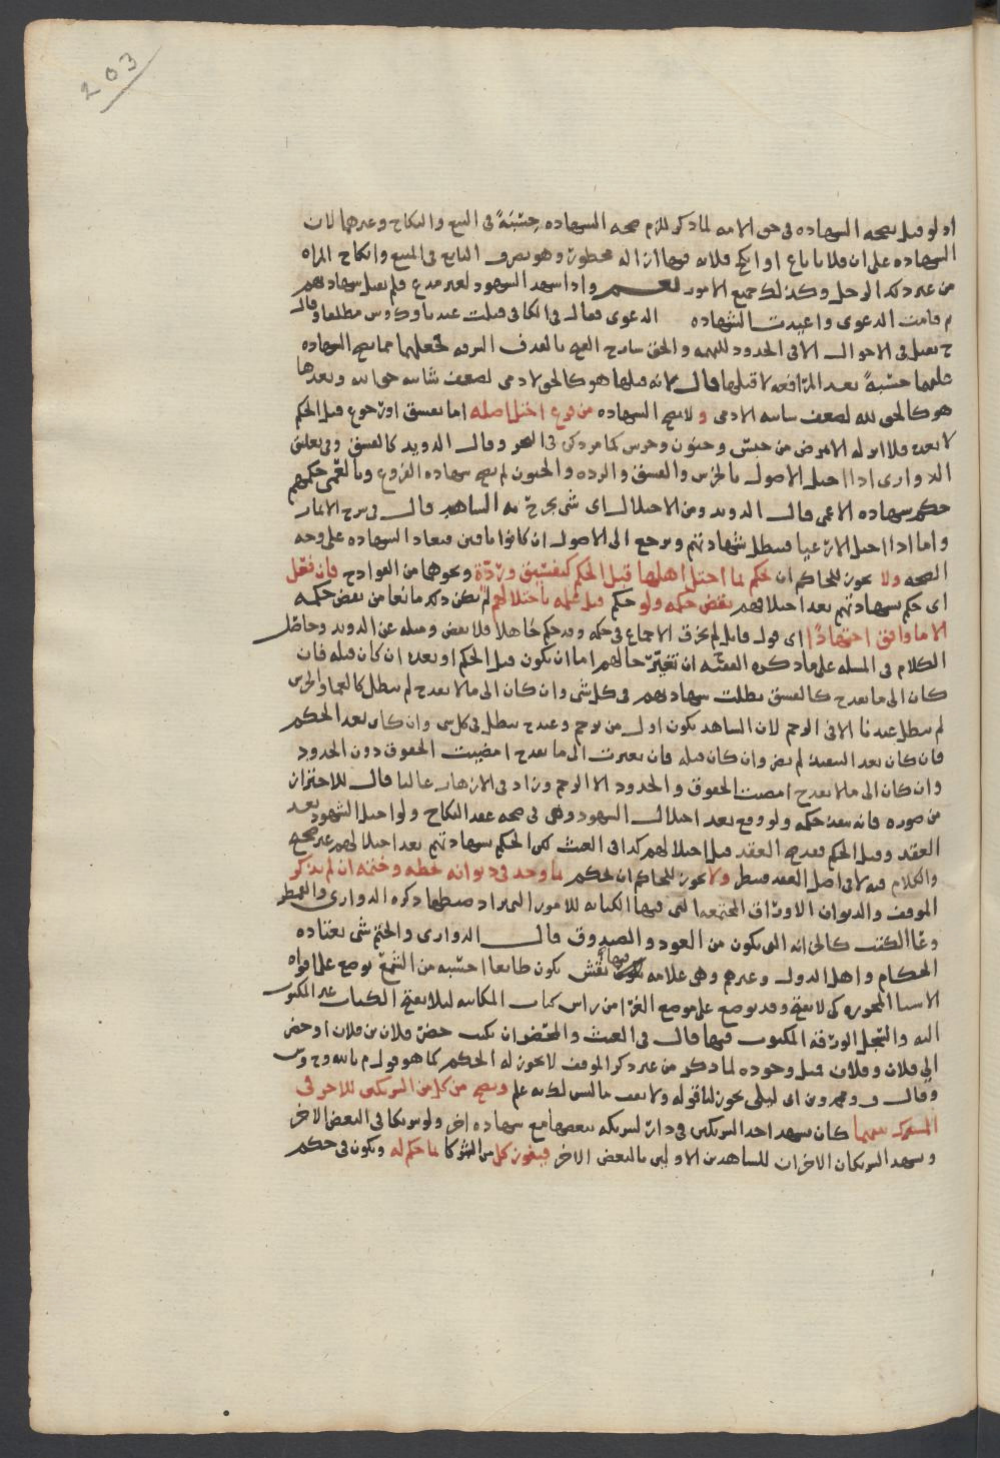 203
او لو قيل بصحه الشهاده فى حق الامه لما ذكر للزم صحه الشهاده حسْبَةً فى البيع والنكاح وغيرهما لان
الشهاده على ان فلانا باع او انكح فلانه فيها ازاله محظور وهو تصرف البايع فى المبيع وانكاح المراه
من غير ذلك الرجل وكذلك جميع الامور نعم واذا شهد الشهود لغير مدع فلم تقبل شهادتهم
ثم قامت الدعوى واعيدت الشهاده الدعوى فقال فى الكافى قبلت عندنا و مطلقا وقال
ح تقبل فى الاحوال الا فى الحدود للتهمه والحق سارح الفتح بالقذف السرقه فجعلهما مما يصح الشهاده
عليهما حسْبةً بعد المرافعه لا قبلها قال لانه قبلها هو كالحق لادمى لضعف شابه حق الله وبعدها
هو كالحق لله لضعف شابه الادمى ولا يصح الشهاده من فرع اختل اصله اما بفسق او رجوع قبل الحكم
لا بعده فلا اثر له الا مرض من حبس وجنون وخرس كما مر ذكره فى وقال الدويد كالفسق وفى تعليق
الدوارى اذا اختل الاصول بالخرس والفسق والرده والجنون لم يصح شهاده الفروع وبالعمى حكمهم
حكم شهاده الاعمى قال الدويد ومن الاختلال اى شى يجرح به الشاهد قال فى شرح الاثمار
واما اذا اختل الارعيا فيبطل شهادتهم ويرجع الى الاصول ان كانوا باقين فتعاد الشهاده على وجه
الصحه ولا يجوز للحاكم ان يحكم بما اختل اهلها قبل الحكم كفسق وردّة ونحوهما من القوادح فان فعل
اى حكم بشهادتهم بعد اختلالهم نقض حكمه ولو حكم قبل علمه باختلالهم لم يكن ذلك مانعا من نقض حكمه
الا ما وافق اجتهادًا اى قول قايل لم يخرق الاجماع فى حكمه وقد حكم جاهلا فلا نقض ومثله عن الدويد وحاصل
الكلام فى المسله على ما ذكره الفقيه ان تغيّر حالهم اما ان يكون قبل الحكم او بعده ان كان قبله فان
كان الى ما يقدح كالفسق بطلت شهادتهم فى كل شى وان كان الى ما لا يقدح لم تبطل كالعما والخرس
لم تبطل عندنا الا فى الرجم لان الشاهد يكون اول من يرجم وعند ح تبطل فى كل شى وان كان بعد الحكم
فان كان بعد التنفيذ لم يضر وان كان قبله فان تغيرت الى ما يقدح امضيت الحقوق دون الحدود
وان كان الى ما لا يقدح امضيت الحقوق والحدود الا الرجم وزاد فى الازهار غالبا قال للاحتراز
من صوره فانه ينفذ حكمه ولو وقع بعد اختلال الشهود وهى فى صحه عقد النكاح ولو اختل الشهود بعد
العقد وقبل الحكم فقد صح العقد قبل اختلالهم كذا فى الغيث لكن الحكم بشهادتهم بعد اختلالهم غير صحيح
والكلام فيه لا فى اصل العقد فينظر ولا يجوز للحاكم ان يحكم بما وجد فى ديوانه بخطه وختمه ان لم يذكر
الموقف والديوان الاوراق المجتمعه التى فيها الكتابه للامور التى يراد ضبطها ذكره الدوارى والقمطر
وعا الكتب كالخزانه التى تكون من العود والصندوق قال الدوارى والختم شى يعتاده
الحكام واهل الدول وغيرهم وهى علامه فيها نقش يكون طابعا احسبه من الشمع يوضع على افواه
الاشيا المحروزه كى لا يفتح وقد يوضع على موضع الفرا من راس كتاب المكاتبه ليلا يفتح الكتاب غير المكتوب
اليه والسجل الورقه المكتوب فيها قال فى الغيث والمحضر ان يكتب حضر فلان بن فلان او حضر
الى فلان وفلان قبل وجوده لما ذكر من غير ذكر الموقف لا يجوز له الحكم كما هو قول م بالله وح وش
وقال ف ومحمد وبن ابى ليلى يجوز لنا قوله ولا تقف ما ليس لك به علم ويصح من كل من الشريكين للاخر فى
المشترك بينهما كان يشهد احد الشريكين فى دار لشريكه ببعضها مع شهاده اخر ولو شريكا فى البعض الاخر
ويشهد الشريكان الاخران للشاهدين الاولين بالبعض الاخر فيفوز كل من الشركا بما حكم له ويكون فى حكم